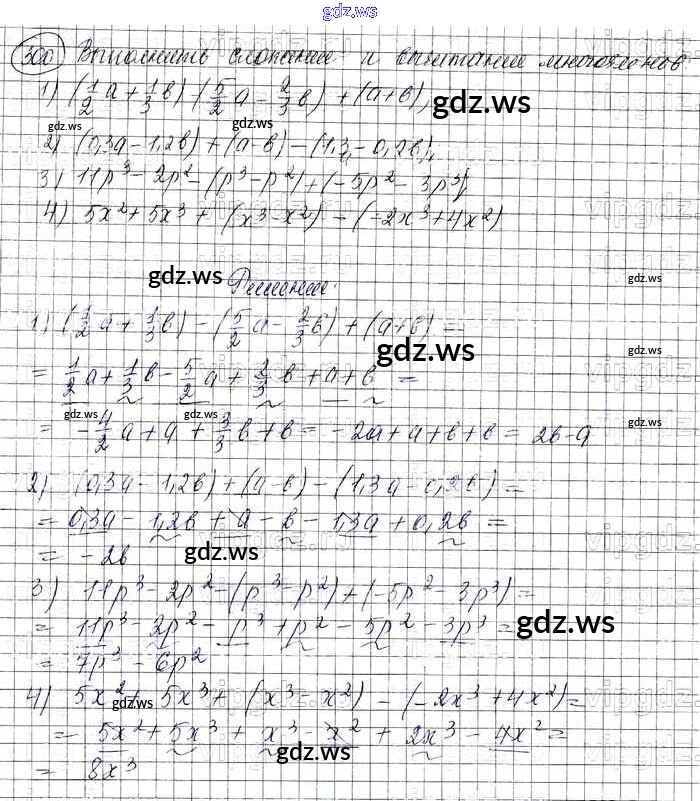 gdz.ws
300 Выполнить сложение и вычитание многочленов
1) (1/2 a + 1/3 b) - (5/2 a - 2/3 b) + (a + b),
gdz.ws
gdz.ws gdz.ws
2) (0,3a - 1,2b) + (a - b) - (1,3 - 0,2b);
3) 11p³ - 2p² - (p³ - p²) + (-5p² - 3p³);
4) 5x² + 5x³ + (x³ - x²) - (-2x³ + 4x²)
gdz.ws gdz.ws
Решение:
1) (1/2 a + 1/3 b) - (5/2 a - 2/3 b) + (a + b) =
gdz.ws gdz.ws
= 1/2 a + 1/3 b - 5/2 a + 2/3 b + a + b =
gdz.ws gdz.ws gdz.ws
= - 4/2 a + a + 3/3 b + b = -2a + a + b + b = 2b - a
2) (0,3a - 1,2b) + (a - b) - (1,3a - 0,2b) =
= 0,3a - 1,2b + a - b - 1,3a + 0,2b =
= -2b
gdz.ws
3) 11p³ - 2p² - (p³ - p²) + (-5p² - 3p³) =
= 11p³ - 2p² - p³ + p² - 5p² - 3p³ =
gdz.ws
= 7p³ - 6p²
4) 5x² + 5x³ + (x³ - x²) - (-2x³ + 4x²) =
gdz.ws
= 5x² + 5x³ + x³ - x² + 2x³ - 4x² =
gdz.ws
= 8x³